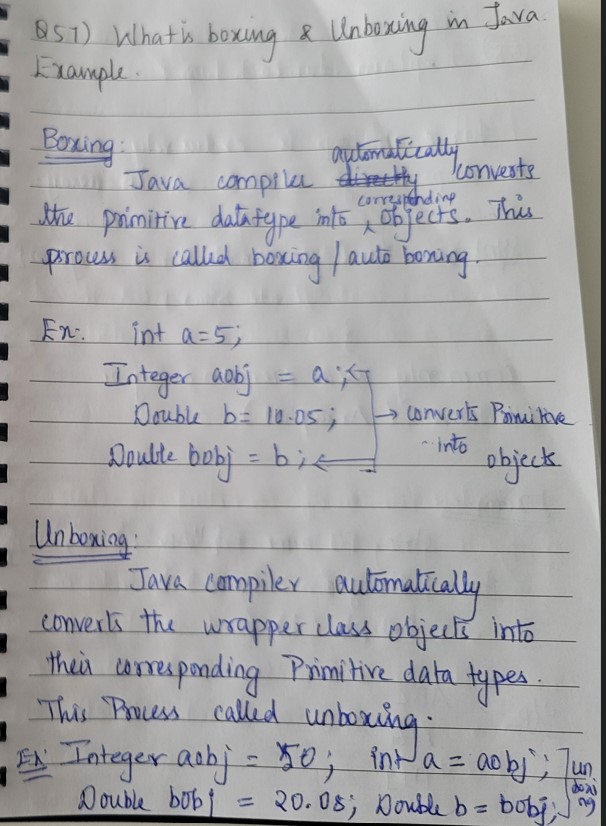 Q51) What is boxing & Unboxing in Java.
Example.
Boxing:
Java compiler automatically converts
the primitive datatype into corresponding objects. This
process is called boxing / auto boxing.
Ex: int a=5;
Integer aobj = a;
Double b= 10.05; → converts Primitive
into
Double bobj = b; objects
Unboxing:
Java compiler automatically
converts the wrapper class objects into
their corresponding Primitive data types.
This Process called unboxing.
Ex Integer aobj = 50; int a = aobj; unboxing
Double bobj = 20.05; Double b = bobj;